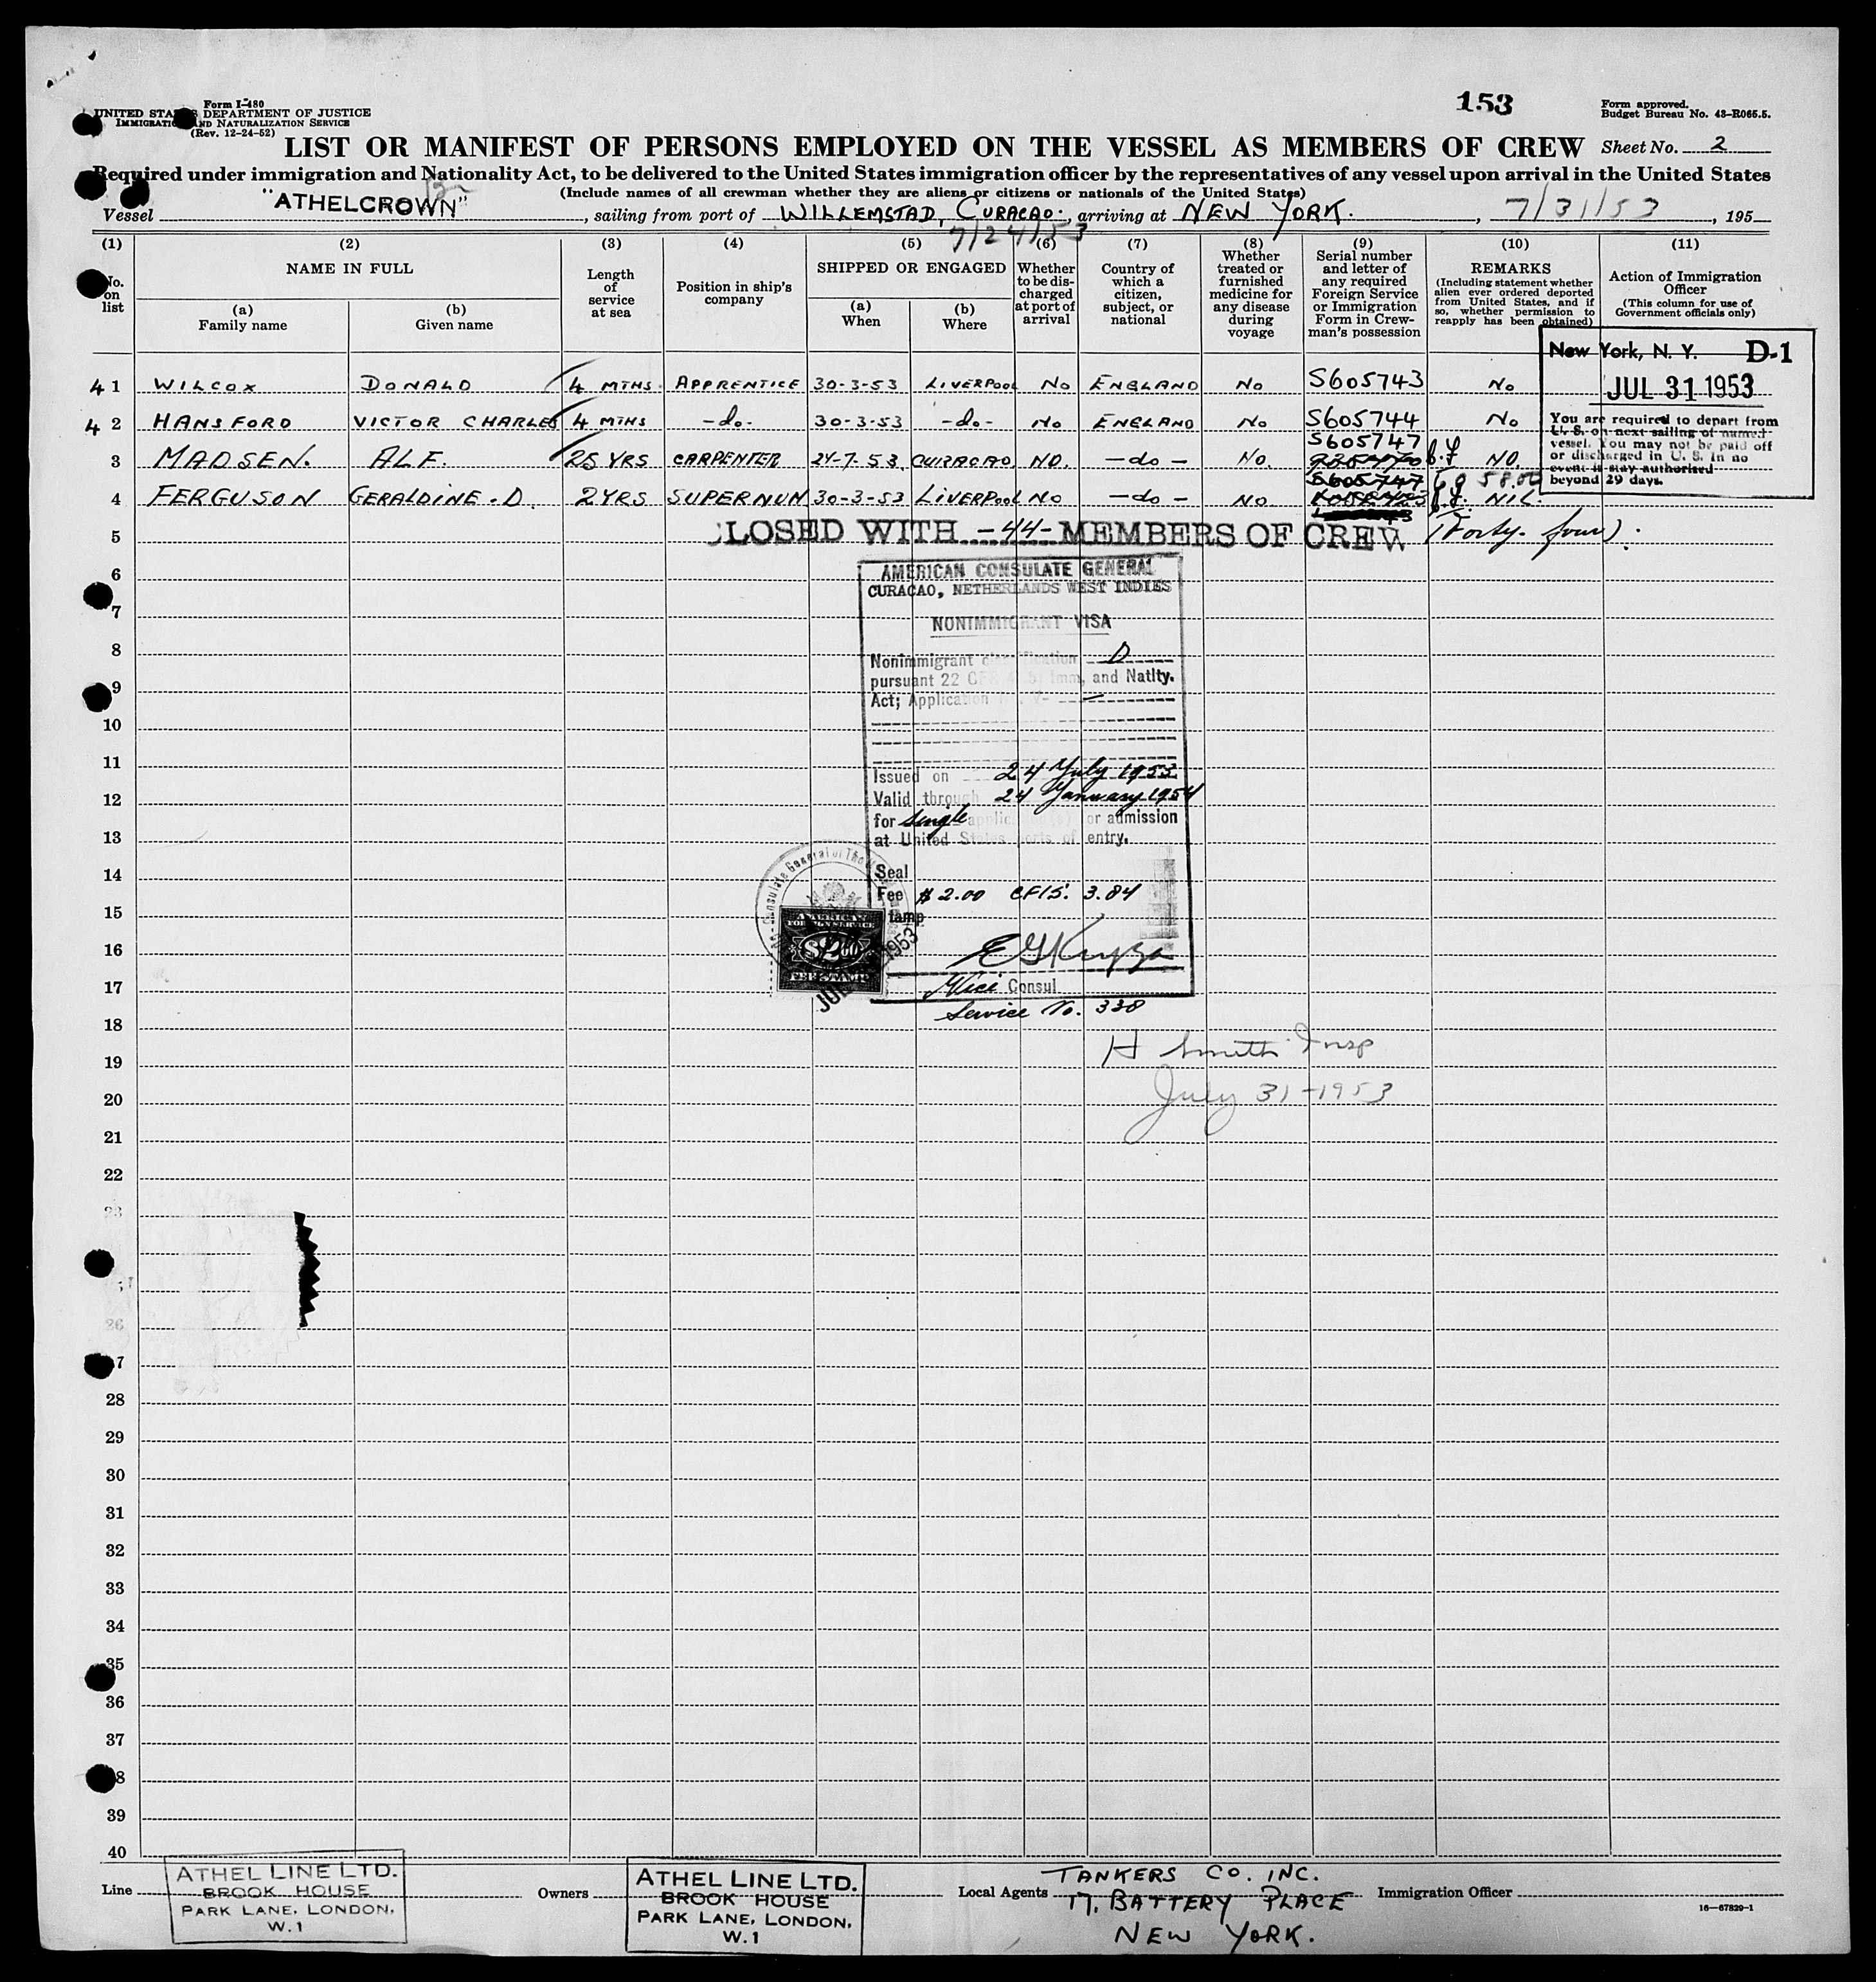 Form I-480
UNITED STATES DEPARTMENT OF JUSTICE
IMMIGRATION AND NATURALIZATION SERVICE
(Rev. 12-24-52)
153
Form approved.
Budget Bureau No. 43-R065.5.
LIST OR MANIFEST OF PERSONS EMPLOYED ON THE VESSEL AS MEMBERS OF CREW
Sheet No. 2
Required under immigration and Nationality Act, to be delivered to the United States immigration officer by the representatives of any vessel upon arrival in the United States
(Include names of all crewman whether they are aliens or citizens or nationals of the United States)
Vessel "ATHELCROWN" Br, sailing from port of WILLEMSTAD, CURACAO., arriving at NEW YORK., 7/31/53, 195
7/24/53
(1) (2) (3) (4) (5) (6) (7) (8) (9) (10) (11)
No. on list
NAME IN FULL
(a) Family name
(b) Given name
Length of service at sea
Position in ship's company
SHIPPED OR ENGAGED
(a) When
(b) Where
Whether to be discharged at port of arrival
Country of which a citizen, subject, or national
Whether treated or furnished medicine for any disease during voyage
Serial number and letter of any required Foreign Service or Immigration Form in Crewman's possession
REMARKS
(Including statement whether alien ever ordered deported from United States, and if so, whether permission to reapply has been obtained)
Action of Immigration Officer
(This column for use of Government officials only)
New York, N. Y. D-1
JUL 31 1953
You are required to depart from
U. S. on next sailing of named
vessel. You may not be paid off
or discharged in U. S. In no
event is stay authorised
beyond 29 days.
41 WILCOX DONALD 4 MTHS. APPRENTICE 30-3-53 LIVERPOOL NO ENGLAND NO S605743 NO
42 HANSFORD VICTOR CHARLES 4 MTHS -do- 30-3-53 -do- NO ENGLAND NO S605744 NO
S605747
3 MADSEN. ALF. 25 YRS CARPENTER 24-7-53. CURACAO. NO. -do- NO. NO.
S605747
4 FERGUSON GERALDINE.D. 2YRS SUPERNUM 30-3-53 LIVERPOOL NO -do- NO NIL.
CLOSED WITH -44- MEMBERS OF CREW (Forty-four).
5
6
7
8
9
10
11
12
13
14
15
16
17
18
19
20
21
22
23
26
28
29
30
31
32
33
34
35
36
37
39
40
AMERICAN CONSULATE GENERAL
CURAÇAO, NETHERLANDS WEST INDIES
NONIMMIGRANT VISA
Nonimmigrant classification D
pursuant 22 CFR Imm. and Natlty.
Act; Application No. V- —
Issued on 24 July 1953
Valid through 24 January 1954
for single application(s) for admission
at United States ports of entry.
Seal
Fee $2.00 CF15. 3.84
Stamp
Consulate General of The
AMERICAN
FOREIGN SERVICE
$2.00
FEE STAMP
JUL 1953
Vice Consul
Service No. 338
H Smith Insp
July 31-1953
Line
ATHEL LINE LTD.
BROOK HOUSE
PARK LANE, LONDON,
W.1
Owners
ATHEL LINE LTD.
BROOK HOUSE
PARK LANE, LONDON,
W.1
Local Agents
TANKERS CO. INC.
17, BATTERY PLACE
NEW YORK.
Immigration Officer
16-67829-1